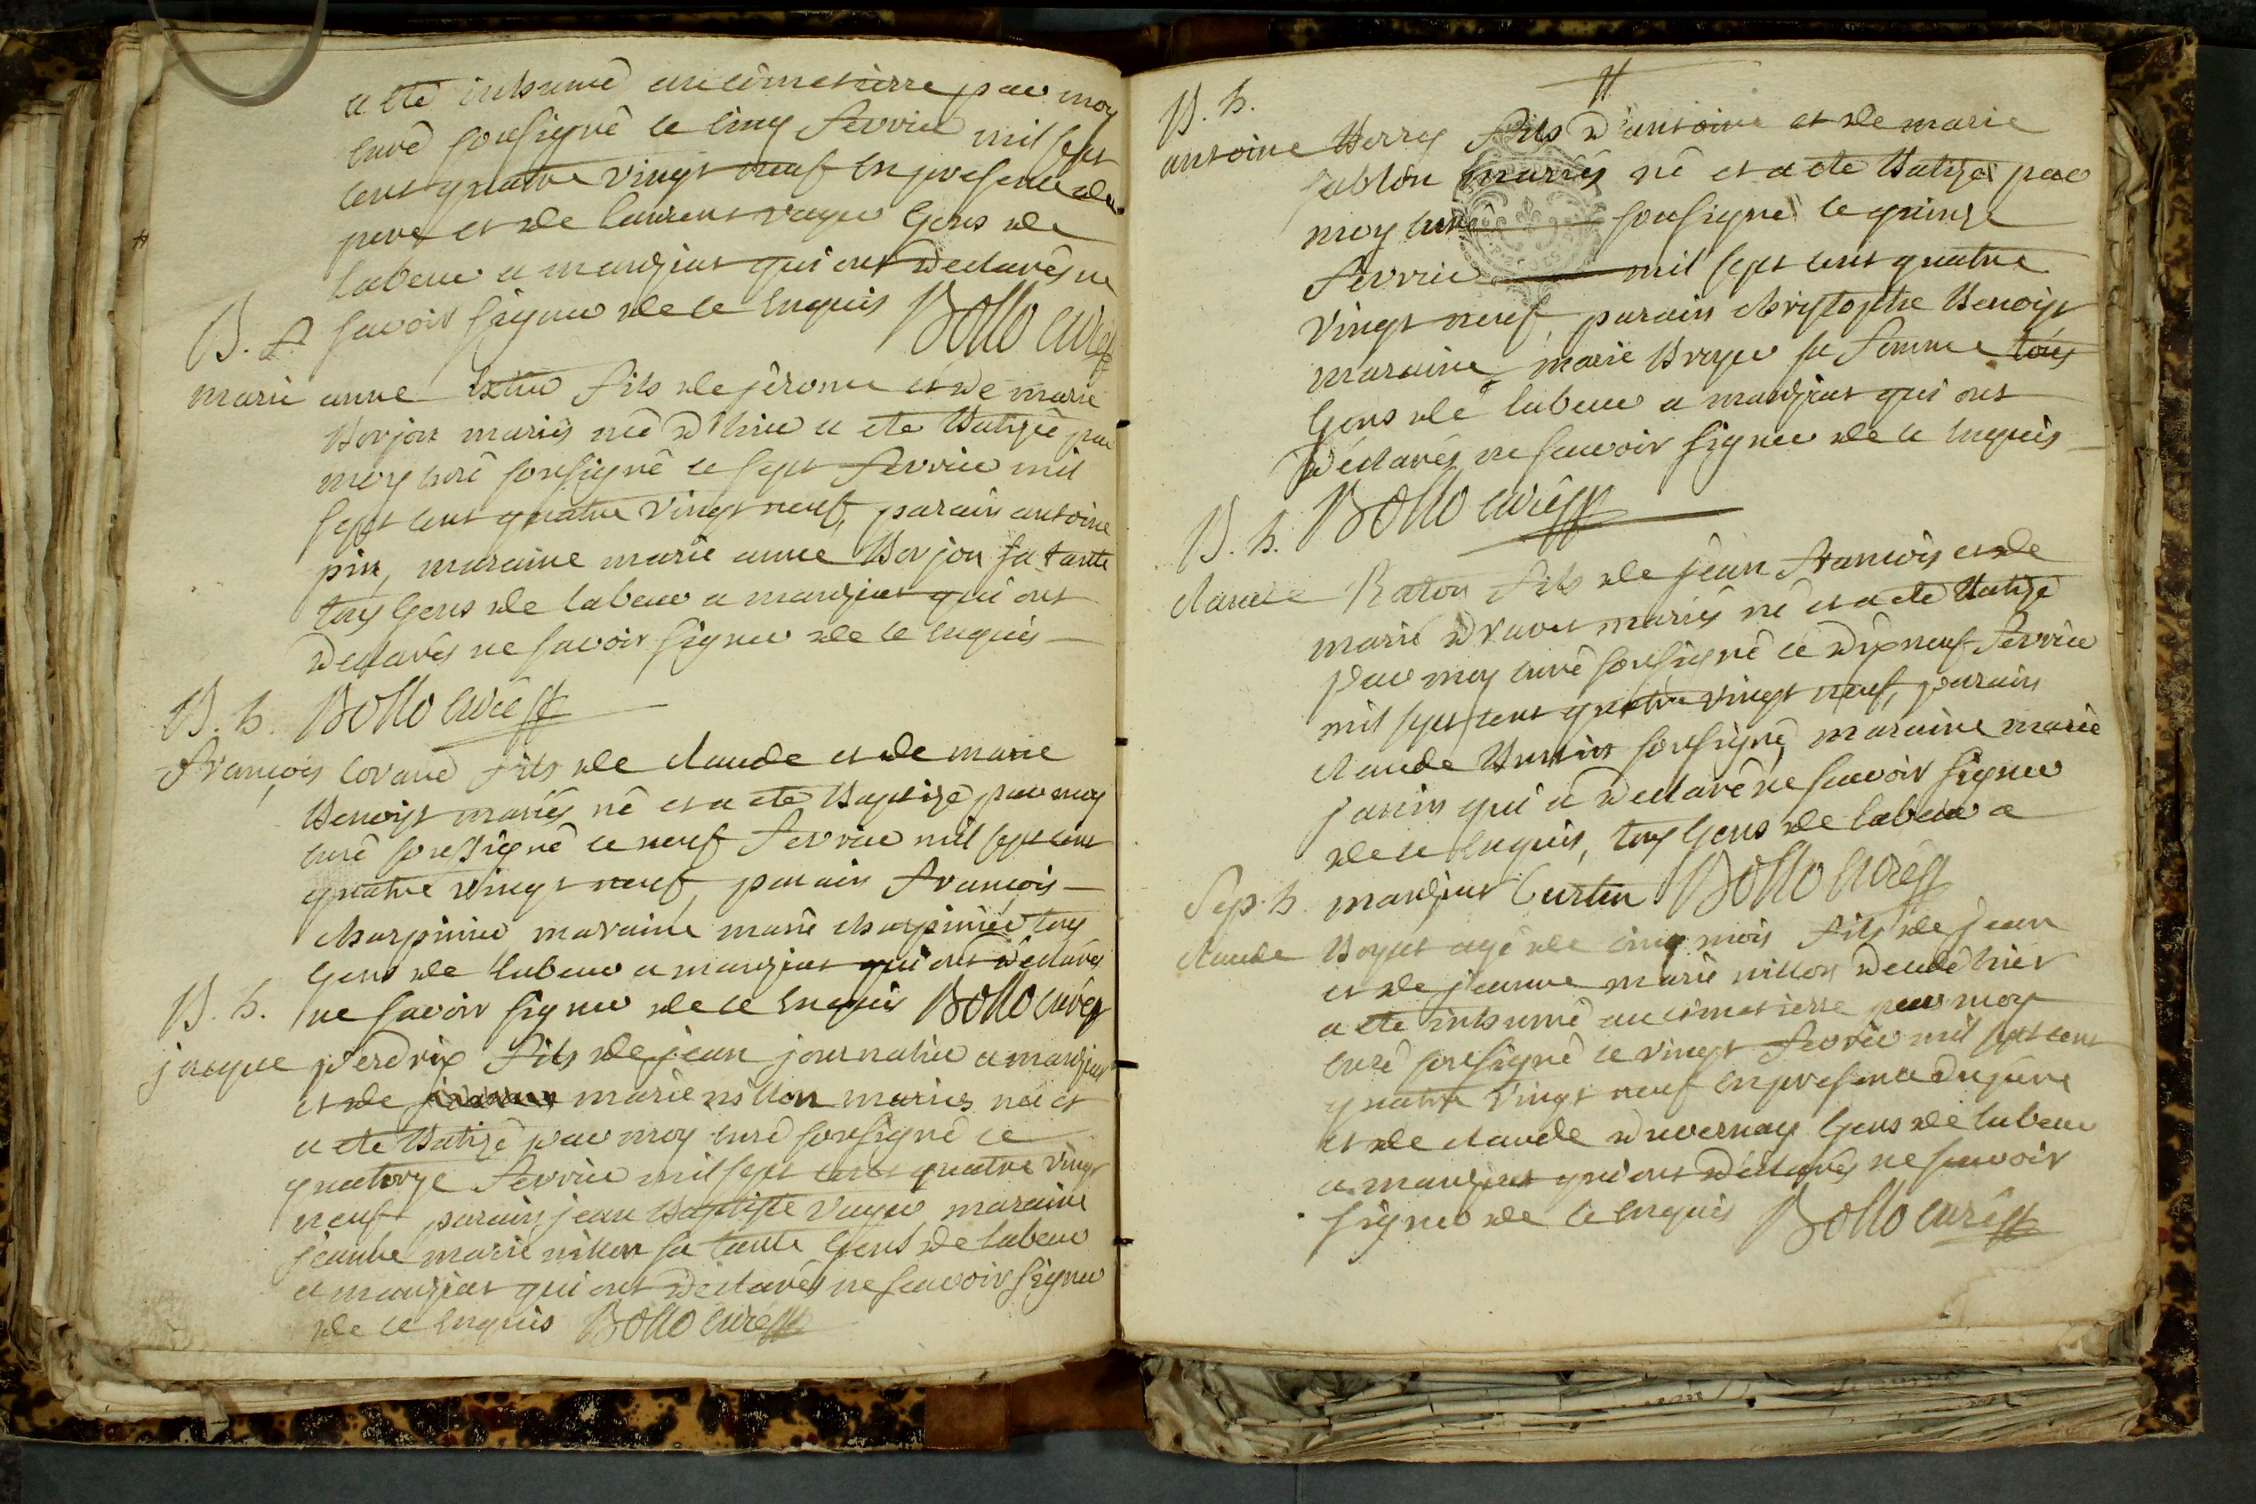 a été inhumé au cimetierre par moy
curé sousigné le cinq fevrier mil sept
cent quatre vingt neuf en presence du
pere et de laurent vayer Gens de
labeur a manziat qui ont declarés ne
savoir signer de ce enquis Bollo curé
B. f.
marie anne fils de jérome et de marie
Borjon mariés née d'hier a eté Batizée par
moy curé sousigné ce sept fevrier mil
sept cent quatre vingt neuf, parain antoine
pin, maraine marie anne Borjon sa tante
tous Gens de labeur a manziat qui ont
declarés ne savoir signer de ce enquis
B. h. Bollo curé
François lorand fils de claude et de marie
Benoist mariés né et a eté Baptizé par moy
curé soussigné ce neuf fevrier mil sept cent
quatre vingt neuf parain François
charpinier maraine marie charpinier tous
Gens de labeur a manziat qui ont declarés
B. h. ne savoir signer de ce enquis Bollo curé
jacque perdrix fils de jean journalier a manziat
et de marie nillon mariés né et
a eté Batizé par moy curé sousigné ce
quatorze fevrier mil sept cent quatre vingt
neuf parain jean Baptiste vayer maraine
jeanne marie nillon sa tante Gens de labeur
a manziat qui ont declarés ne scavoir signer
de ce enquis Bollo curé
B. h.
antoine Berry fils d'antoine et de marie
sablon mariés né et a eté Batizé par
moy curé sousigné le quinze
fevrier mil sept cent quatre
vingt neuf, parain christophe Benoist
maraine marie Broyer sa femme tous
Gens de labeur a manziat qui ont
declarés ne savoir signer de ce enquis
B. h. Bollo curé
claude Raton fils de jean François et de
marie dravet mariés né et a eté Batizé
par moy curé sousigné ce dixneuf fevrier
mil sept cent quatre vingt neuf, parain
claude sousigné maraine marie
janin qui a declaré ne scavoir signer
de ce enquis, tous Gens de labeur a
Sep. h. manziat Curtin Bollo curé
claude Boyat agé de cinq mois fils de jean
et de jeanne marie nillon decedé hier
a eté inhumé au cimetierre par moy
curé sousigné ce vingt fevrier mil sept cent
quatre vingt neuf en presence du pere
et de claude duvernay Gens de labeur
a manziat qui ont declarés ne scavoir
signer de ce enquis Bollo curé